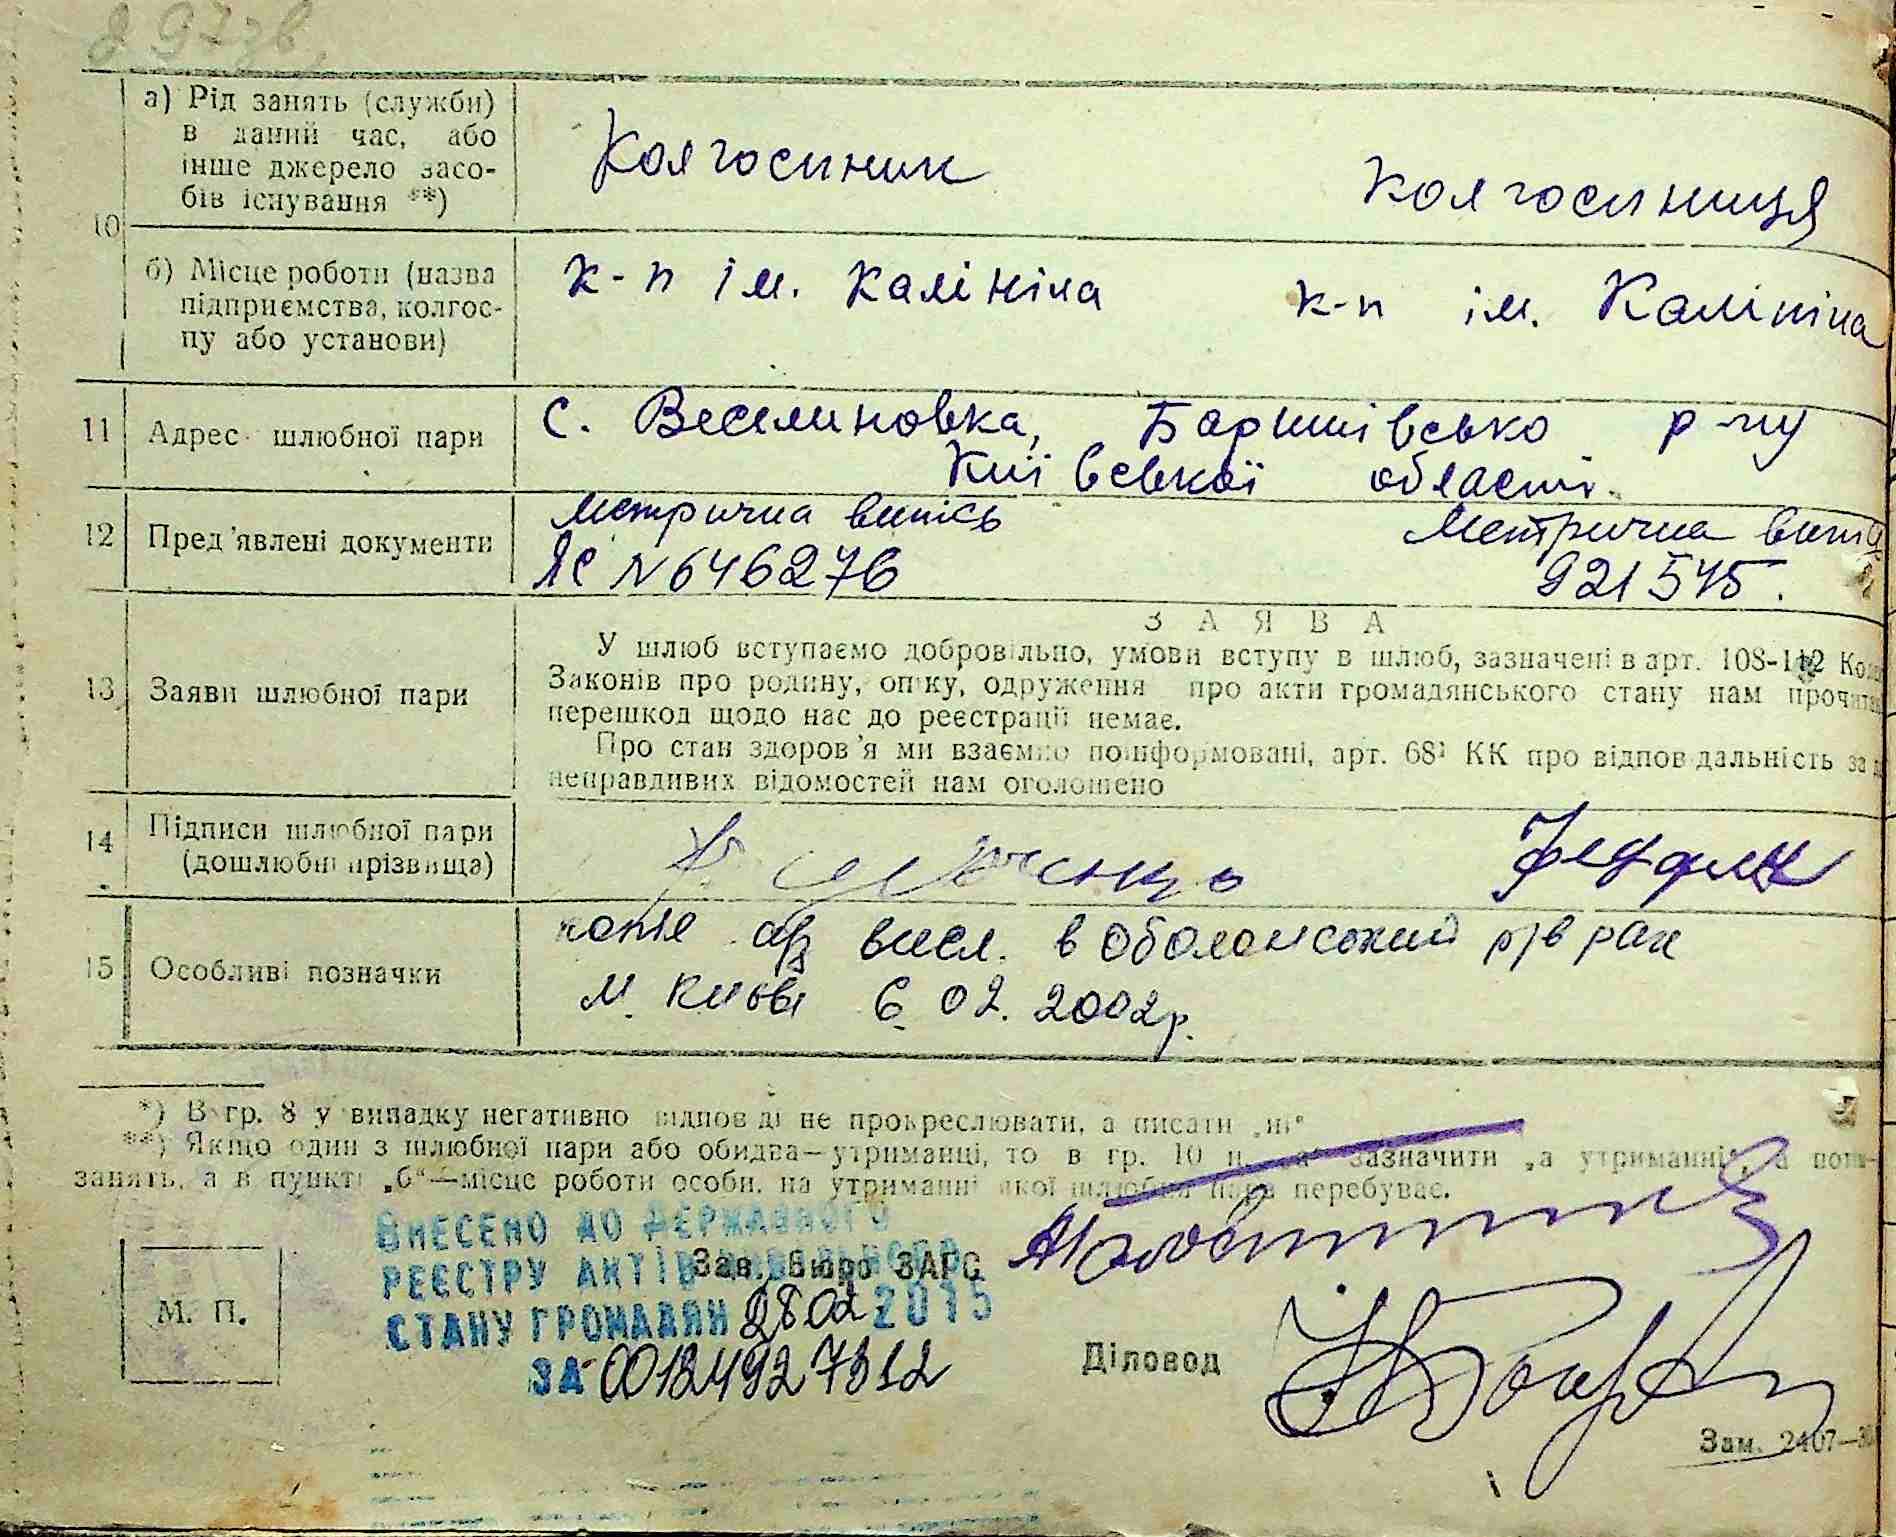 10
а) Рід занять (служби)
в даний час, або
інше джерело засо-
бів існування **)
Колгоспник
Колгоспниця
б) Місце роботи (назва
підприємства, колгос-
пу або установи)
к-п ім. Калініна
к-п ім. Калініна
11 Адрес шлюбної пари
с. Веселиновка, Баришівсько р-ну
Київської області.
12 Пред'явлені документи
Метрична випись
ЯС № 646276
Метрична
921545.
13 Заяви шлюбної пари
ЗАЯВА
У шлюб вступаємо добровільно, умови вступу в шлюб, зазначені в арт. 108-112
Законів про родину, опіку, одруження про акти громадянського стану нам
перешкод щодо нас до реєстрації немає.
Про стан здоров'я ми взаємно поінформовані, арт. 68¹ КК про відповідальність за
неправдивих відомостей нам оголошено
14 Підписи шлюбної пари
(дошлюбні прізвища)
15 Особливі позначки
копія а/з висл. в Оболонський р/в рагс
м. Києва 6.02.2002р.
*) В гр. 8 у випадку негативно відповіді не прокреслювати, а писати „ні"
**) Якщо один з шлюбної пари або обидва—утриманці, то в гр. 10 п. „а" зазначити „а утриманні", а
занять, а в пункті „б"—місце роботи особи, на утриманні якої шлюбна пара перебуває.
ВНЕСЕНО ДО ДЕРЖАВНОГО
РЕЄСТРУ АКТІВ ЦИВІЛЬНОГО
СТАНУ ГРОМАДЯН 28.02 2015
ЗА 00124927312
Зав. Бюро ЗАГС
М. П.
Діловод
Зам. 2407